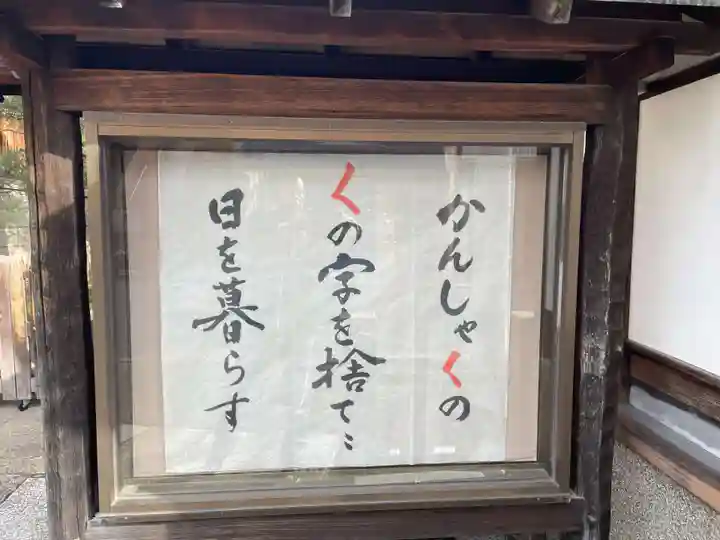 かんしゃくの
くの字を捨て…
日を暮らす